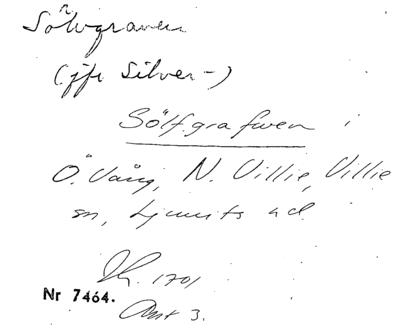 Sölvgraven
(jfr Silver-)
Sölfgrafwen i
Ö. Vång, N. Villie, Villie
sn, Ljunits hd
1701
Nr 7464.
Akt 3.